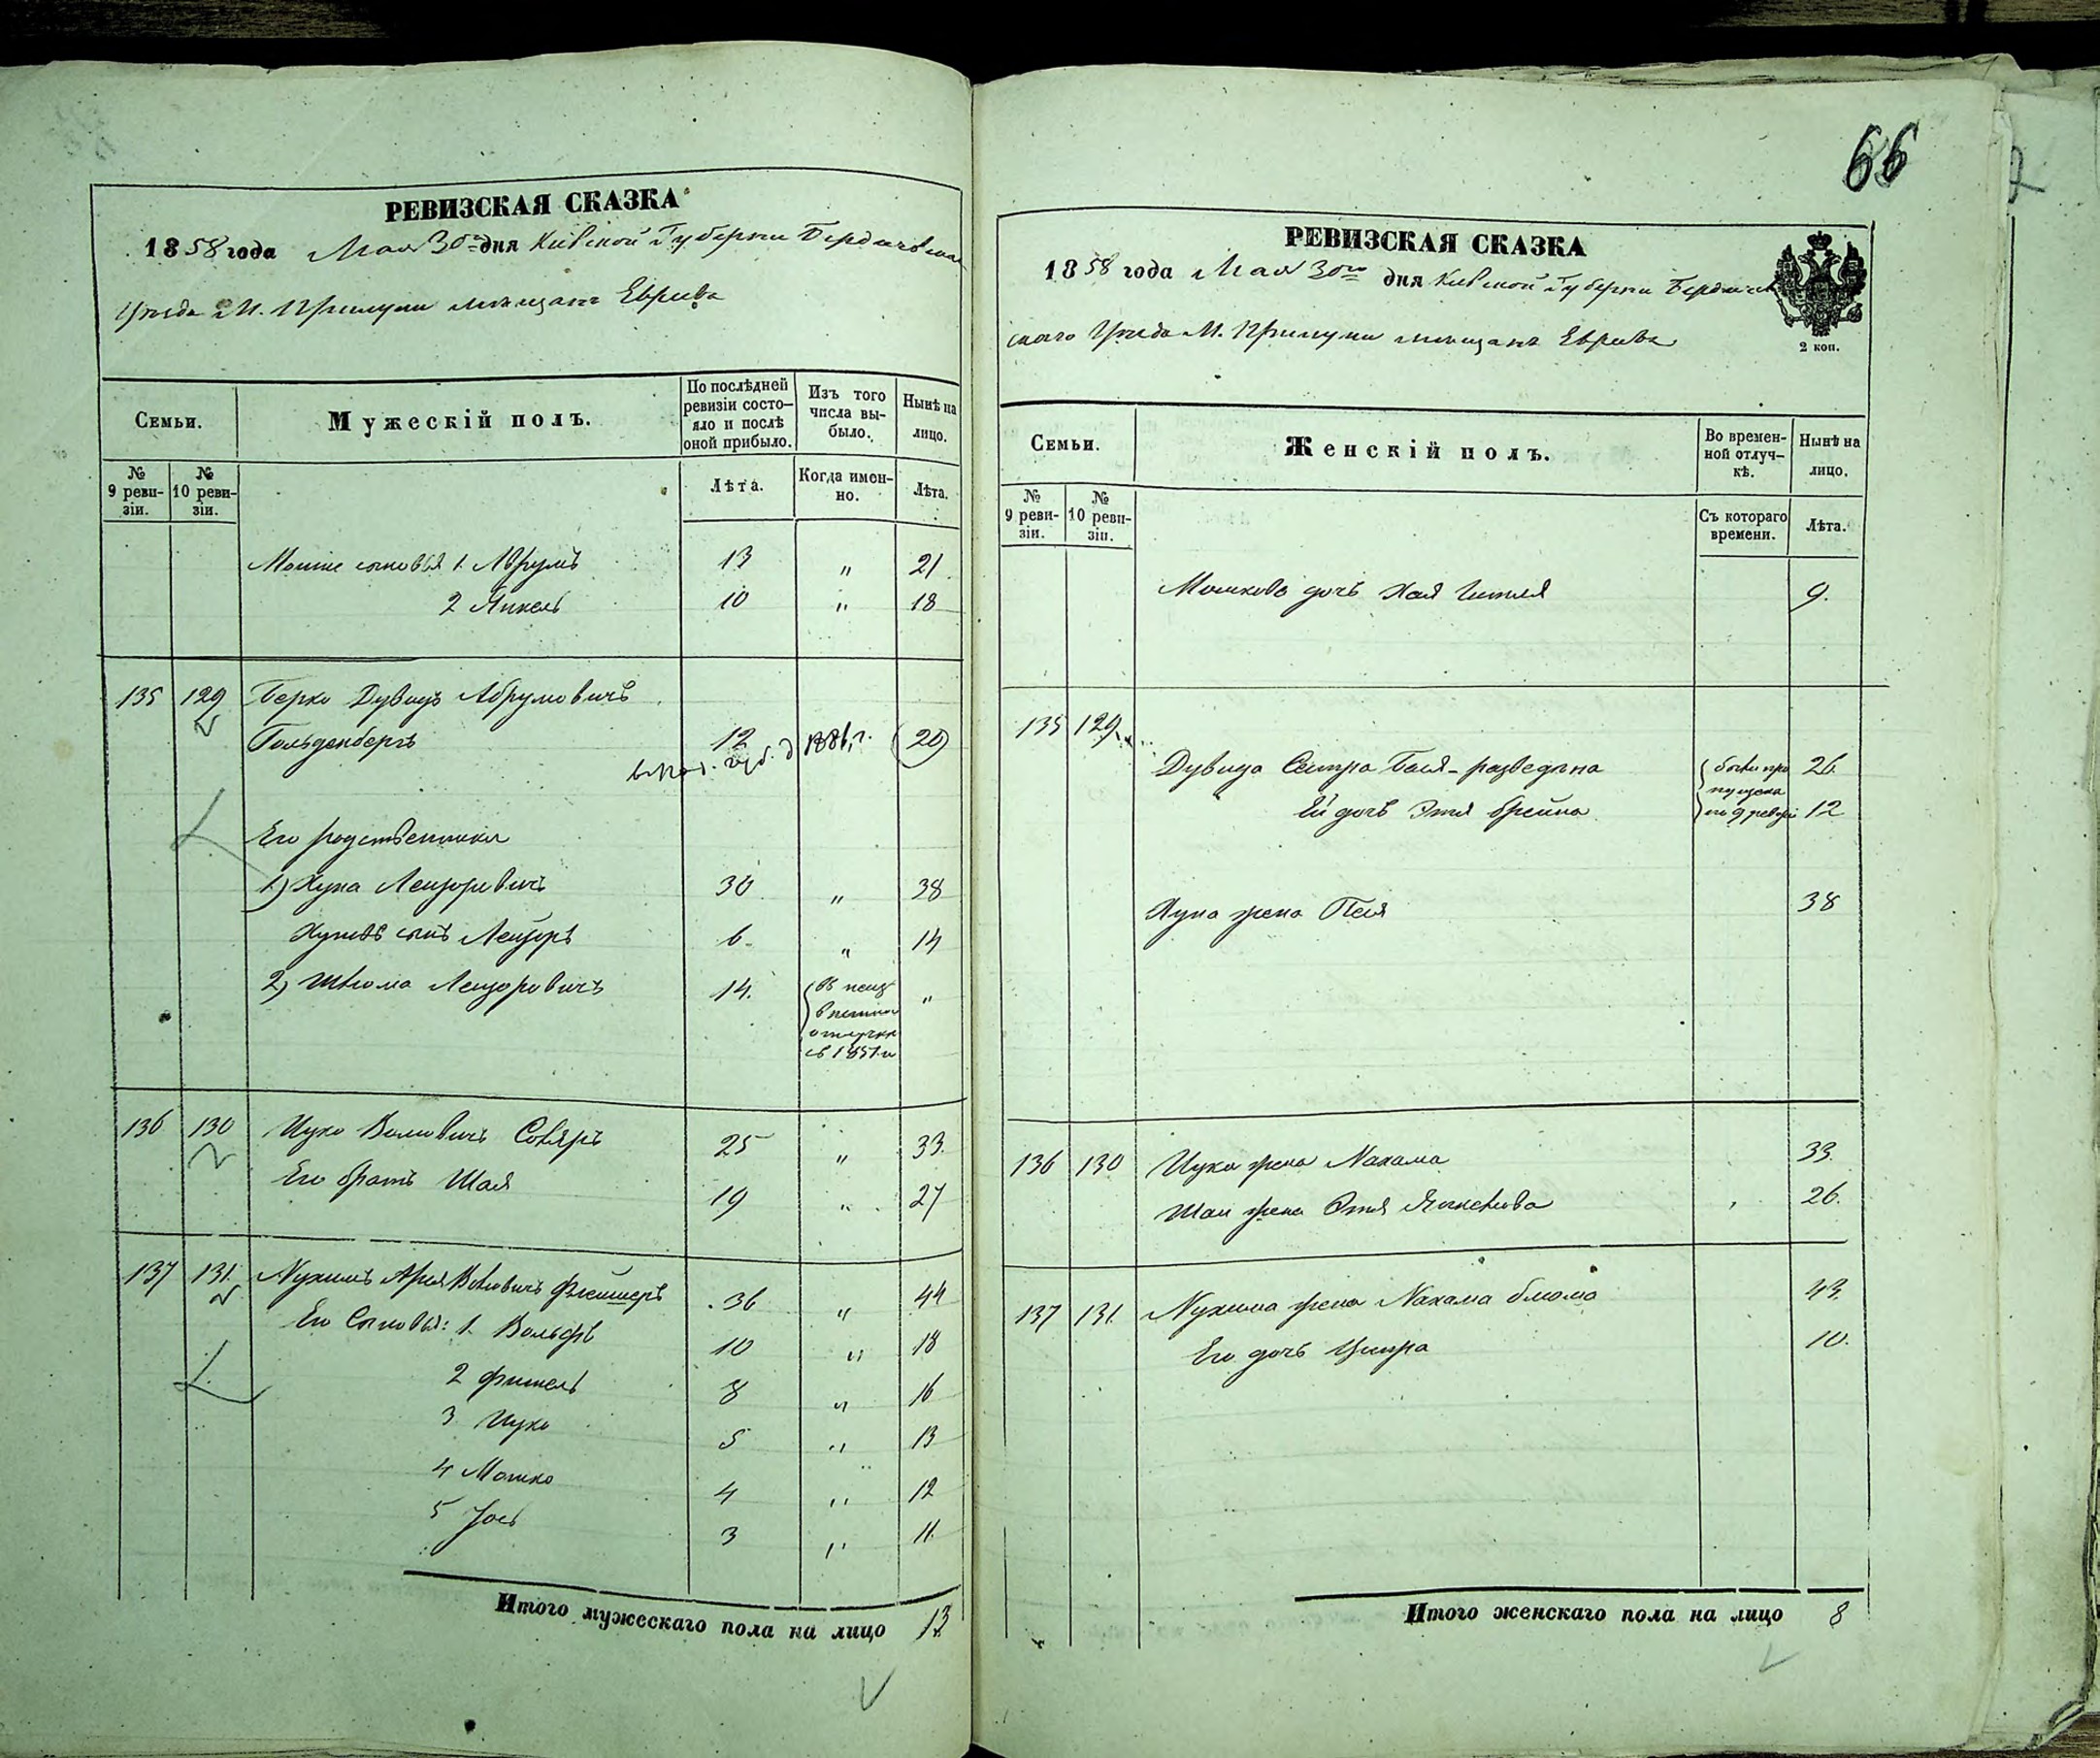 РЕВИЗСКАЯ СКАЗКА
1858 года Мая 30го дня Киевской Губернии Бердичевскаго
Уезда М. Прилуки мещанъ Евреевъ
Семьи.
Мужескій полъ.
По послѣдней ревизіи состо-
яло и послѣ
оной прибыло.
Изъ того
числа вы-
было.
Нынѣ на
лицо.
№
9 реви-
зіи.
№
10 реви-
зіи.
Лѣта.
Когда имен-
но.
Лѣта.
Мошки сыновья 1. Аврумъ 13 " 21
2 Янкель 10 " 18
135 129 Берко Дувидъ Абрумовичъ
Гольденбергъ 12 20
Его родственники
1) Хуна Лейзоровичъ 30 " 38
Хуны сынъ Лейзоръ 6 " 14
2) Шлома Лейзоровичъ 14. въ неиз-
вестной
отлучке
съ 1851 г. "
136 130 Ицко Волковичъ Столяръ 25 " 33.
Его братъ Шая 19 " 27
137 131. Нухимъ Арья Волковичъ Флейшеръ 36 " 44
Его Сыновья: 1. Вольфъ 10 " 18
2 Фишель 8 " 16
3 Ицко 5 " 13
4 Мошко 4 " 12
5 Іось 3 " 11.
Итого мужескаго пола на лицо 13
66
РЕВИЗСКАЯ СКАЗКА
1858 года Мая 30го дня Киевской Губернии Бердичев
скаго Уезда М. Прилуки мещанъ Евреевъ
2 коп.
Семьи.
Женскій полъ.
Во времен-
ной отлуч-
кѣ.
Нынѣ на
лицо.
№
9 реви-
зіи.
№
10 реви-
зіи.
Съ котораго
времени.
Лѣта.
Мошкова дочь Хая 9.
135 129
Дувида Сестра Бася - разведена были про 26.
пущена
Ей дочь Этя Фрейна по 9 ревизіи 12
Хуна жена Песя 38
136 130 Ицка жена Нахама 33.
Шаи жена Этя 26.
137 131. Нухима жена Нахама Блюма 43.
Его дочь Ципра 10.
Итого женскаго пола на лицо 8